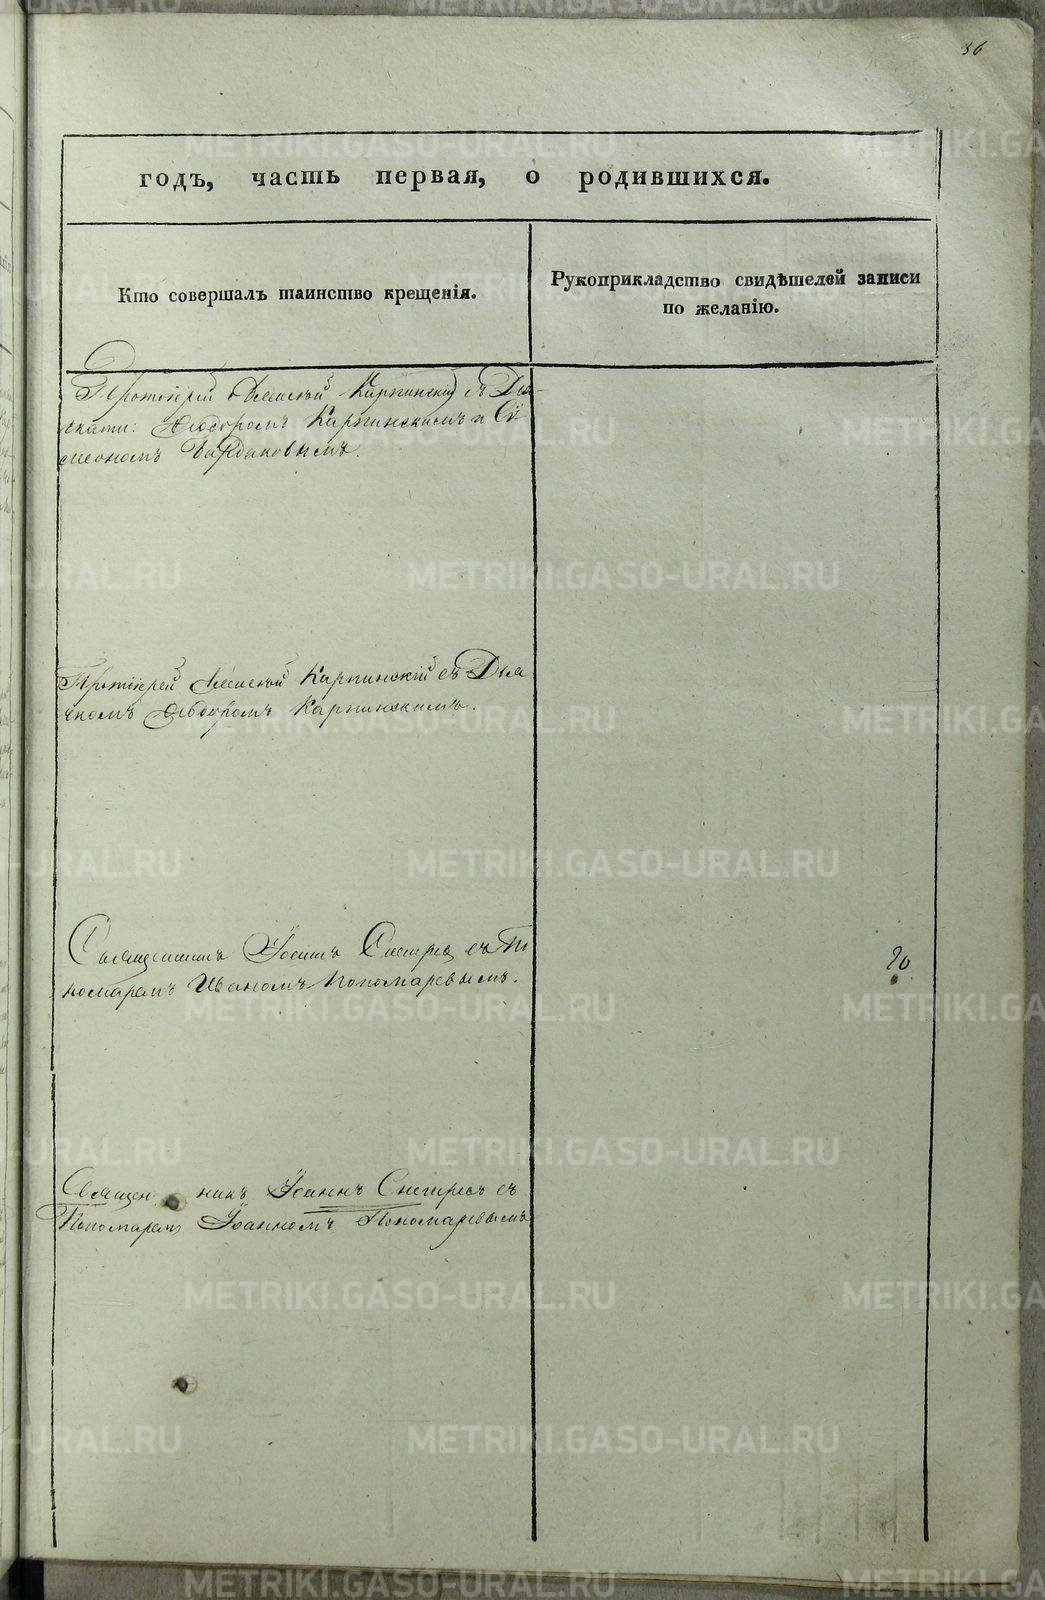 36
годъ, часть первая, о родившихся.
Кто совершалъ таинство крещенія.
Рукоприкладство свидѣтелей записи
по желанію.
Протоіерей Алексѣй Карпинскій съ
Ѳеодоромъ Карпинскимъ и Си
меономъ
Протоіерей Алексѣй Карпинскій съ Дья
чкомъ Ѳеодоромъ Карпинскимъ.
Священникъ Іоаннъ Снегирев съ По
номаремъ Иваномъ Пономаревымъ.
20
Священникъ Іоаннъ Снегиревъ съ
Пономаремъ Іоанномъ Пономаревымъ
METRIKI.GASO-URAL.RU